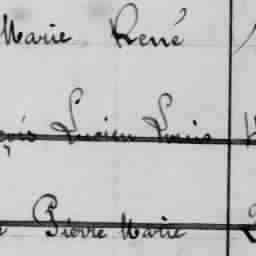 Marie René
Lucien Louis
Pierre Marie